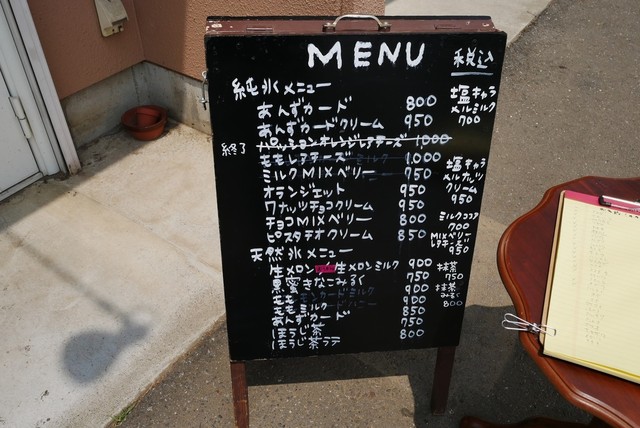 MENU 税込
純氷メニュー
あんずカード 800
あんずカードクリーム 950
終了 パッションオレンジレアチーズ 1,000
ももレアチーズミルク 1,000
ミルクMIXベリー 750
オランジェット 950
ワナッツチョコクリーム 950
チョコMIXベリー 800
ピスタチオクリーム 850
天然氷メニュー
生メロン 生メロンミルク 900
黒蜜きなこみるく 750
もも 900
ももミルク 900
あんずカード 850
ほうじ茶 750
ほうじ茶ラテ 800
塩キャラ
メルミルク
700
塩キャラ
メルナッツ
クリーム
950
ミルクココア
700
MIXベリー
レアチーズ
950
抹茶
750
抹茶
みるく
800